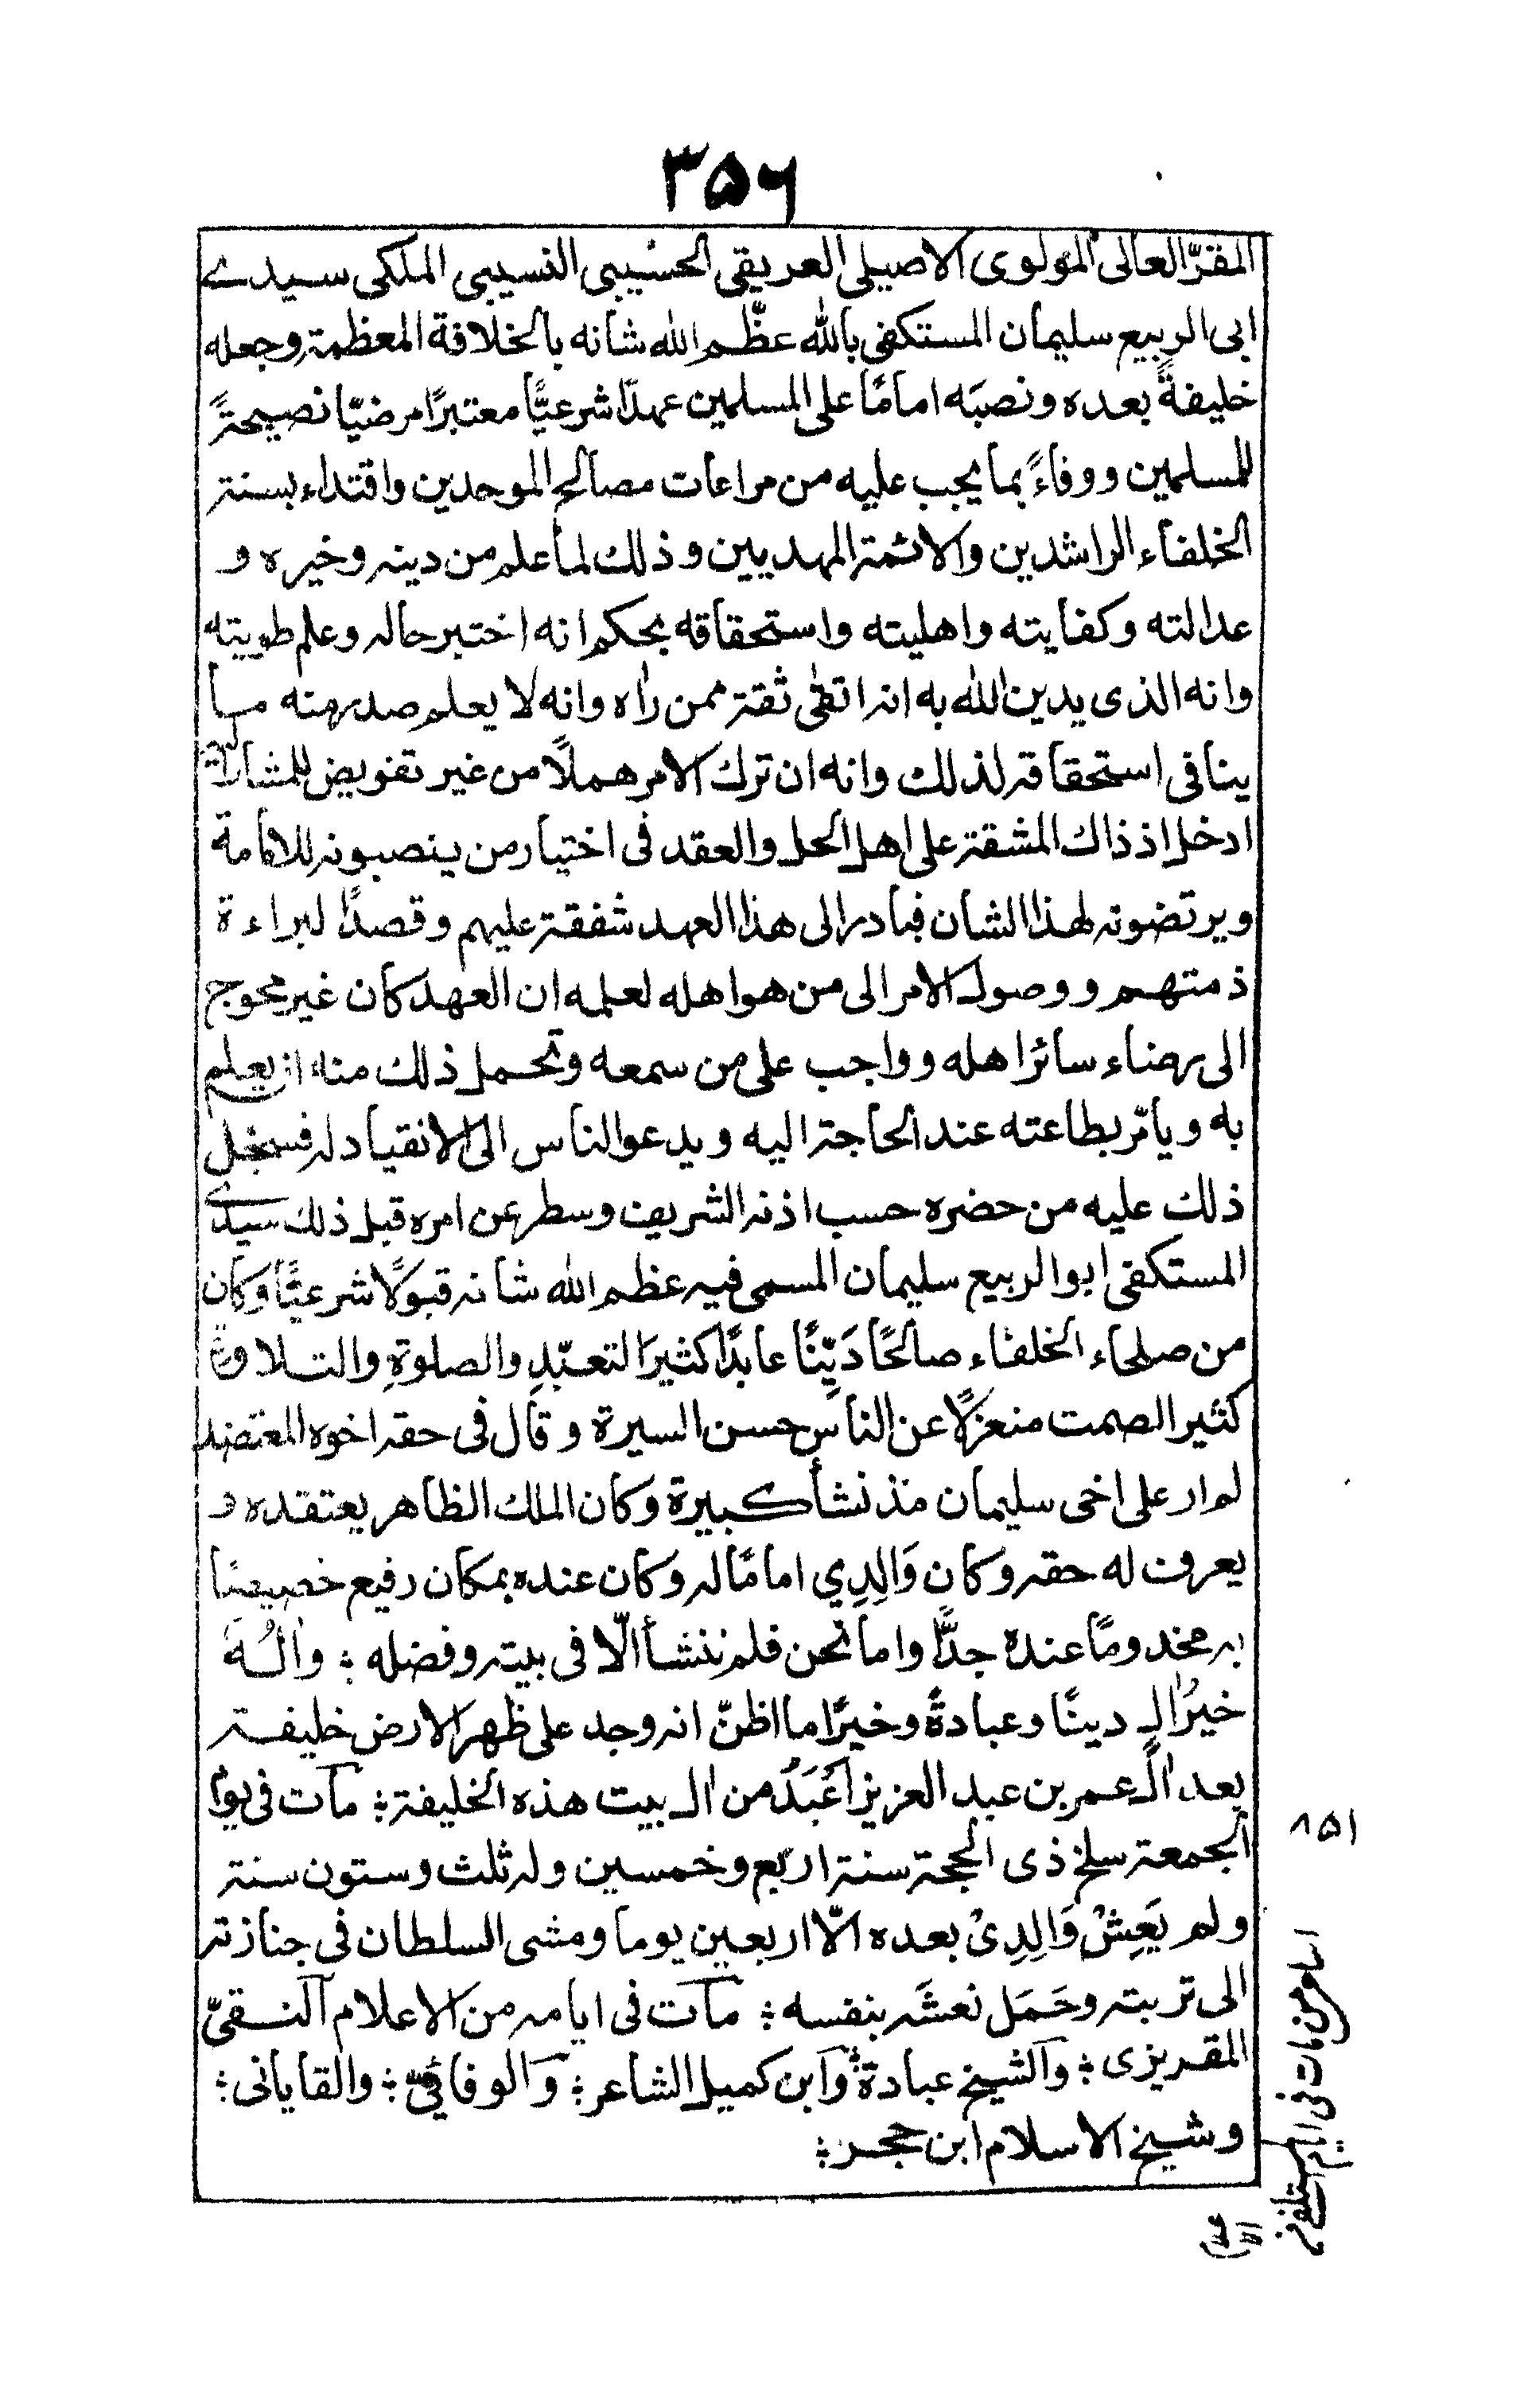 ۳۵۶
المقرّ العالی المولوی الاصیلی العریقی الحسیبی النسیبی الملکی سیدے
ابی الربیع سلیمان المستکفی بالله عظّم الله شانه بالخلافة المعظمة وجعله
خلیفةً بعده ونصبَه امامًا علی المسلمین عهدًا شرعیًّا معتبرًا مرضیّا نصیحةً
للمسلمین ووفاءً بما یجب علیه من مراعات مصالح الموحدین واقتداء بسنة
الخلفاء الراشدین والائمة المهدیین وذلك لما علم من دینه وخیره و
عدالته وکفایته واهلیته واستحقاقه بحکم انه اختبر حاله وعلم طویته
وانه الذی یدین الله به انه اتقی ثقة ممن راٰه وانه لا یعلم صدر منه ما
ینافی استحقاقه لذلك وانه ان ترك الامر هملًا من غیر تفویض للمشار الیه
ادخل اذ ذاك المشقة علی اهل الحل والعقد فی اختیار من ینصبونه للامامة
ویرتضونه لهذا الشان فبادر الی هذا العهد شفقة علیهم وقصدًا لبراءة
ذمتهم ووصول الامر الی من هو اهله لعلمه ان العهد کان غیر محوج
الی رضاء سائر اهله وواجب علی من سمعه وتحمل ذلك منه ان یعلم
به ویامّر بطاعته عند الحاجة الیه ویدعو الناس الی الانقیاد له فسجل
ذلك علیه من حضره حسب اذنه الشریف وسطر عن امره قبل ذلك سیدے
المستکفی ابو الربیع سلیمان المسمی فیه عظم الله شانه قبولًا شرعیًّا وکان
من صلحاء الخلفاء صالحًا دَیّنًا عابدًا کثیرَ التعبّدِ والصلوةِ والتلاوة
کثیر الصمت منعزلًا عن الناس حسن السیرة وقال فی حقه اخوه المعتضد
لم ار علی اخی سلیمان منذ نشأ کبیرة وکان الملك الظاهر یعتقده و
یعرف له حقه وکان وَالِدِي امامًا له وکان عنده بمکان رفیع خصیصًا
به مخدومًا عنده جدًّا واما نحن فلم ننشأ الّا فی بیته وفضله ؛ واٰلُهُ
خیرُ اٰل دینًا وعبادةً وخیرًا ما اظنّ انه وجد علی ظهر الارض خلیفة
بعد اٰل عمر بن عبد العزیز اَعْبَدُ من اٰل بیت هذه الخلیفة ؛ مات فی یوم
الجمعة سلخ ذی الحجة سنة اربع وخمسین وله ثلث وستون سنة
ولم یَعِشْ وَالِدِیْ بعده الّا اربعین یوما ومشی السلطان فی جنازته
الی تربته وحَمَل نعشَه بنفسه ؛ مات فی ایامه من الاعلام التقیّ
المقریزی ؛ والشیخ عبادة ؛ وابن کمیل الشاعر ؛ والوفائیّ ؛ والقایانی ؛
وشیخ الاسلام ابن حجر ؛
۸۵۱
اسامی من مات فی ایام المستکفی